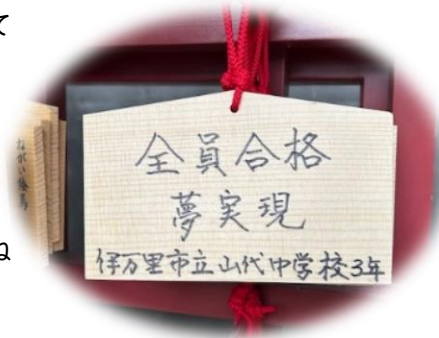 て
ね
ねがい絵馬
全員合格
夢実現
伊万里市立山代中学校3年